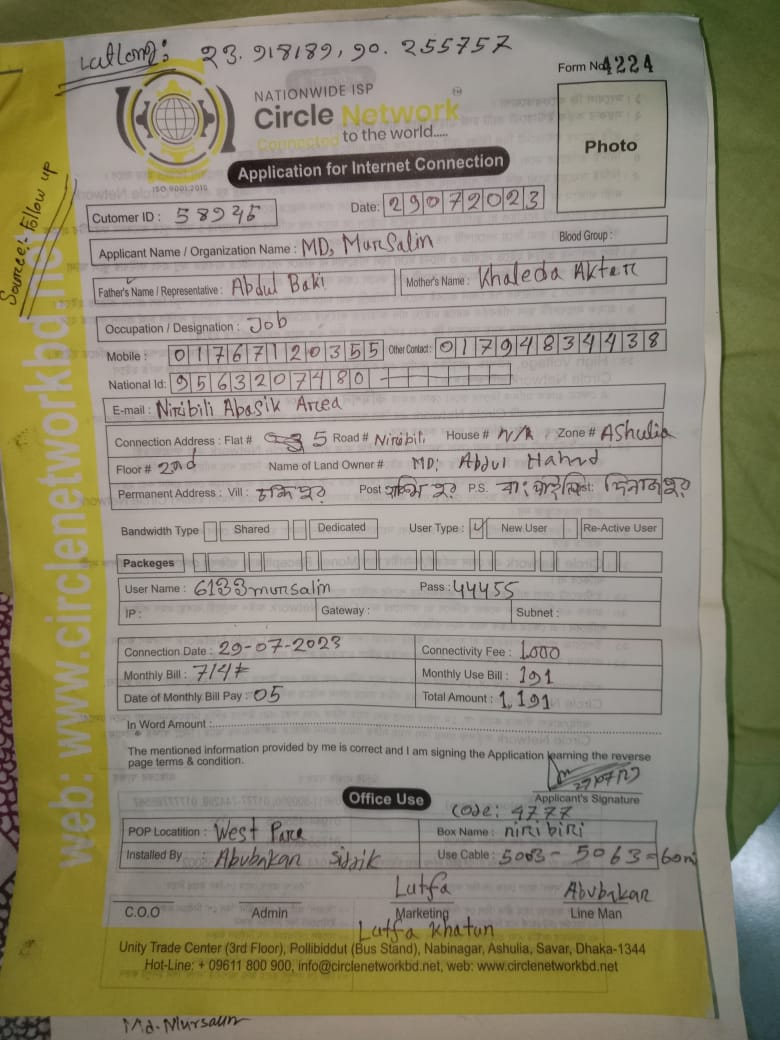 LatLong: 23.918189, 90.255757
Form No. 4224
NATIONWIDE ISP
Circle Network
Connected to the world.....
ISO 9001:2015
Photo
Application for Internet Connection
Source:- Follow up
Cutomer ID : Date: 29072023
Applicant Name / Organization Name : MD, MurSalin Blood Group :
Father's Name / Representative : Abdul Baki Mother's Name : Khaleda Akter
Occupation / Designation : Job
Mobile : 01767120355 Other Contact : 01794834438
National Id: 9563207480
E-mail : Niribili Abasik Area
Connection Address : Flat # 5 Road # Niribili House # n/A Zone # AShulia
Floor # 2nd Name of Land Owner # MD: Abdul Hamid
Permanent Address : Vill : Post P.S. Dist: দিনাজপুর
Bandwidth Type Shared Dedicated User Type : ✓ New User Re-Active User
Packeges
User Name : 6133mursalin Pass : 44455
IP : Gateway : Subnet :
Connection Date : 29-07-2023 Connectivity Fee : 1,000
Monthly Bill : 714৳ Monthly Use Bill : 191
Date of Monthly Bill Pay : 05 Total Amount : 1,191
In Word Amount :
The mentioned information provided by me is correct and I am signing the Application learning the reverse
page terms & condition.
Applicant's Signature
Office Use
Code: 4777
POP Locatition : West Para Box Name : niribiri
Installed By : Abubakar Siddik Use Cable : 5003 - 5063 = 60m
Lutfa Abubakar
C.O.O Admin Marketing Line Man
Lutfa Khatun
Unity Trade Center (3rd Floor), Pollibiddut (Bus Stand), Nabinagar, Ashulia, Savar, Dhaka-1344
Hot-Line: + 09611 800 900, info@circlenetworkbd.net, web: www.circlenetworkbd.net
web: www.circlenetworkbd.net
Md. Mursalin